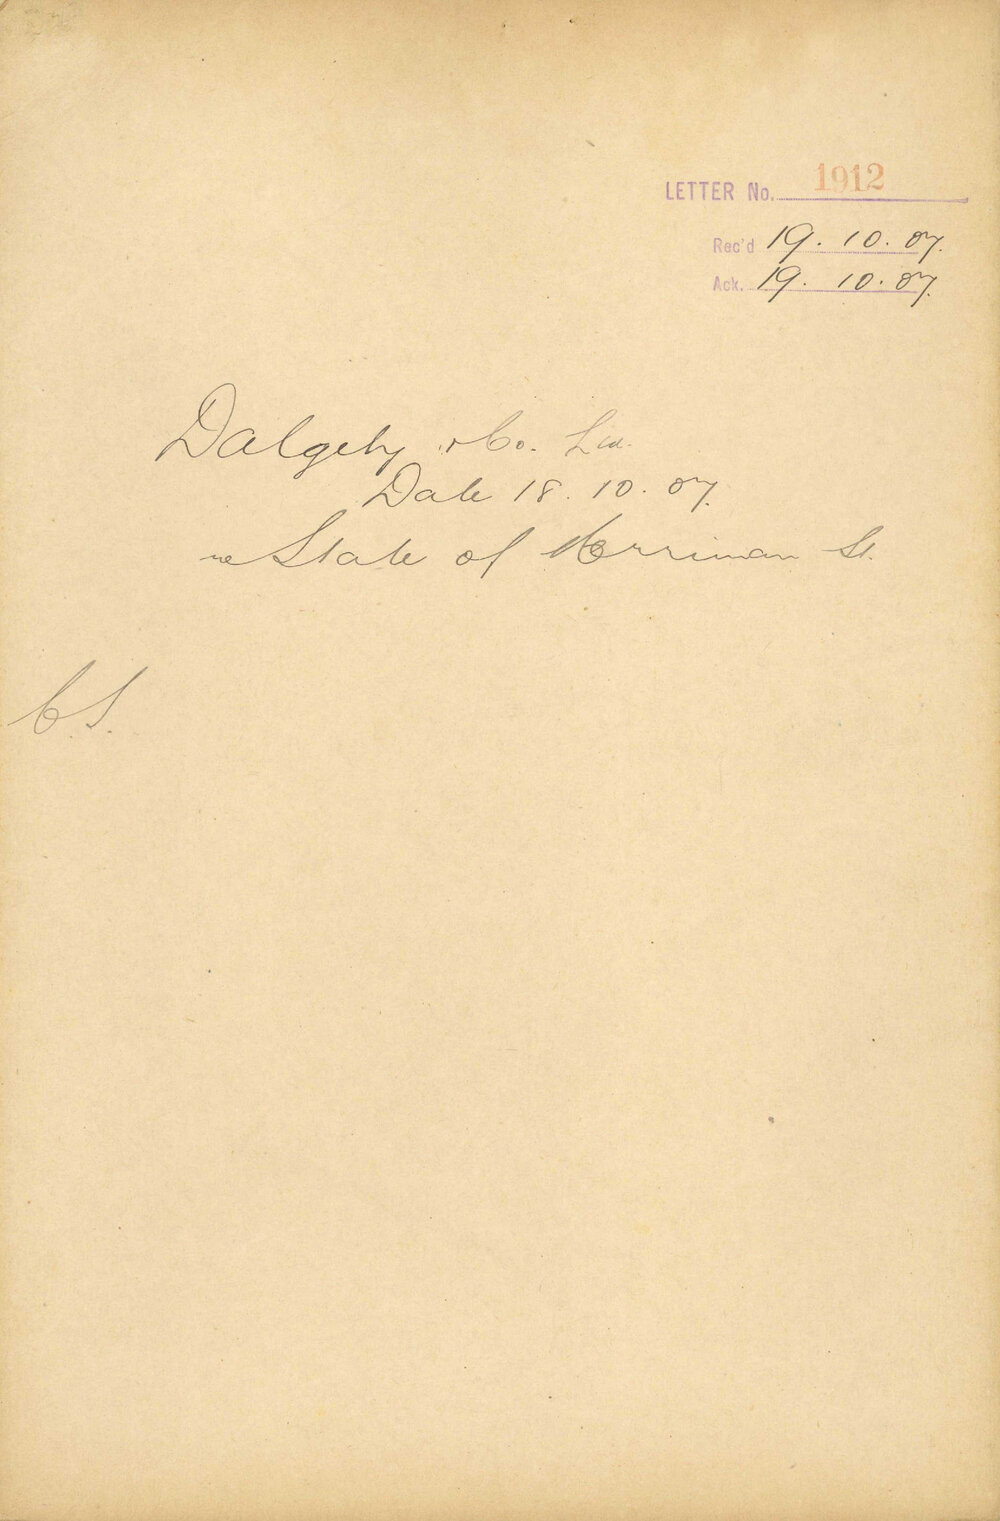 LETTER No. 1912
Rec'd 19. 10. 07.
Ack. 19. 10. 07.
Dalgety & Co. Ltd.
Date 18. 10. 07.
re State of Merriman St.
C.S.